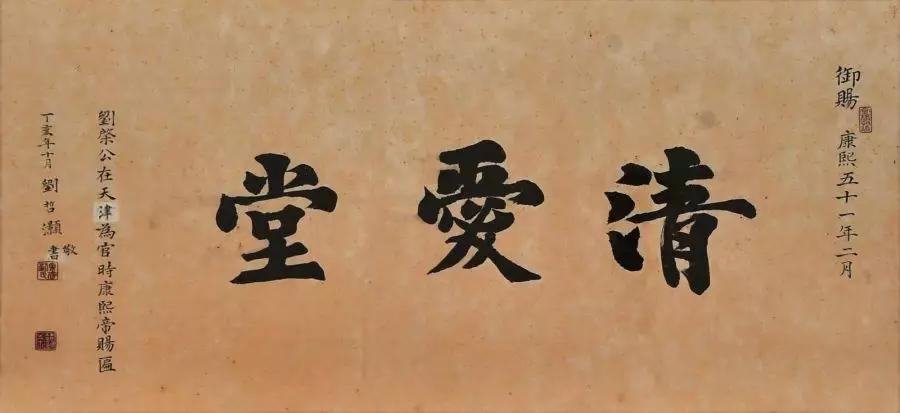 御賜
康熙五十一年二月
清愛堂
劉棨公在天津為官時康熙帝賜匾
丁亥年十月 劉哲灝 敬書